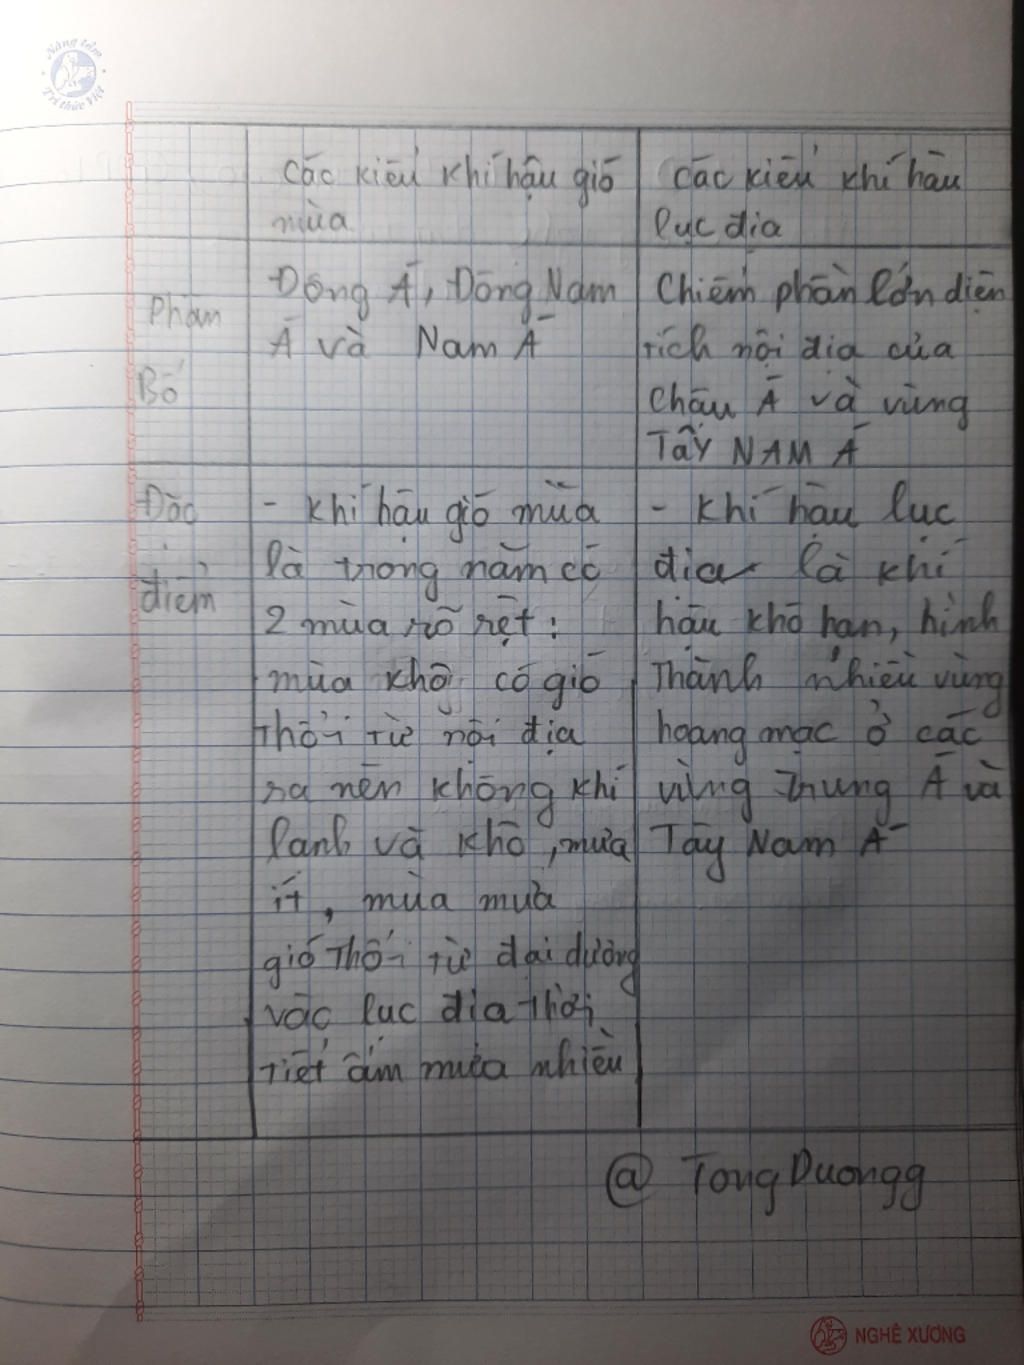 Nâng tầm
Tri thức Việt
Các kiểu khí hậu gió
mùa
Các kiểu khí hậu
lục địa
Phân
Bố
Đông Á, Đông Nam
Á và Nam Á
Chiếm phần lớn diện
tích nội địa của
Châu Á và vùng
TÂY NAM Á
Đặc
điểm
- Khí hậu gió mùa
là trong năm có
2 mùa rõ rệt:
mùa khô có gió
thổi từ nội địa
ra nên không khí
lanh và khô, mưa
ít, mùa mưa
gió thổi từ đại dương
vào lục địa thời
tiết ẩm mưa nhiều
- Khí hậu lục
địa là khí
hậu khô hạn, hình
Thành nhiều vùng
hoang mạc ở các
vùng Trung Á và
Tây Nam Á
@ TongDuongg
NGHÊ XƯƠNG